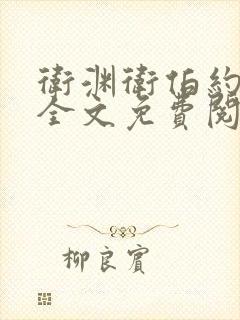 衛淵衛伯約
全文免費閱
柳良賓